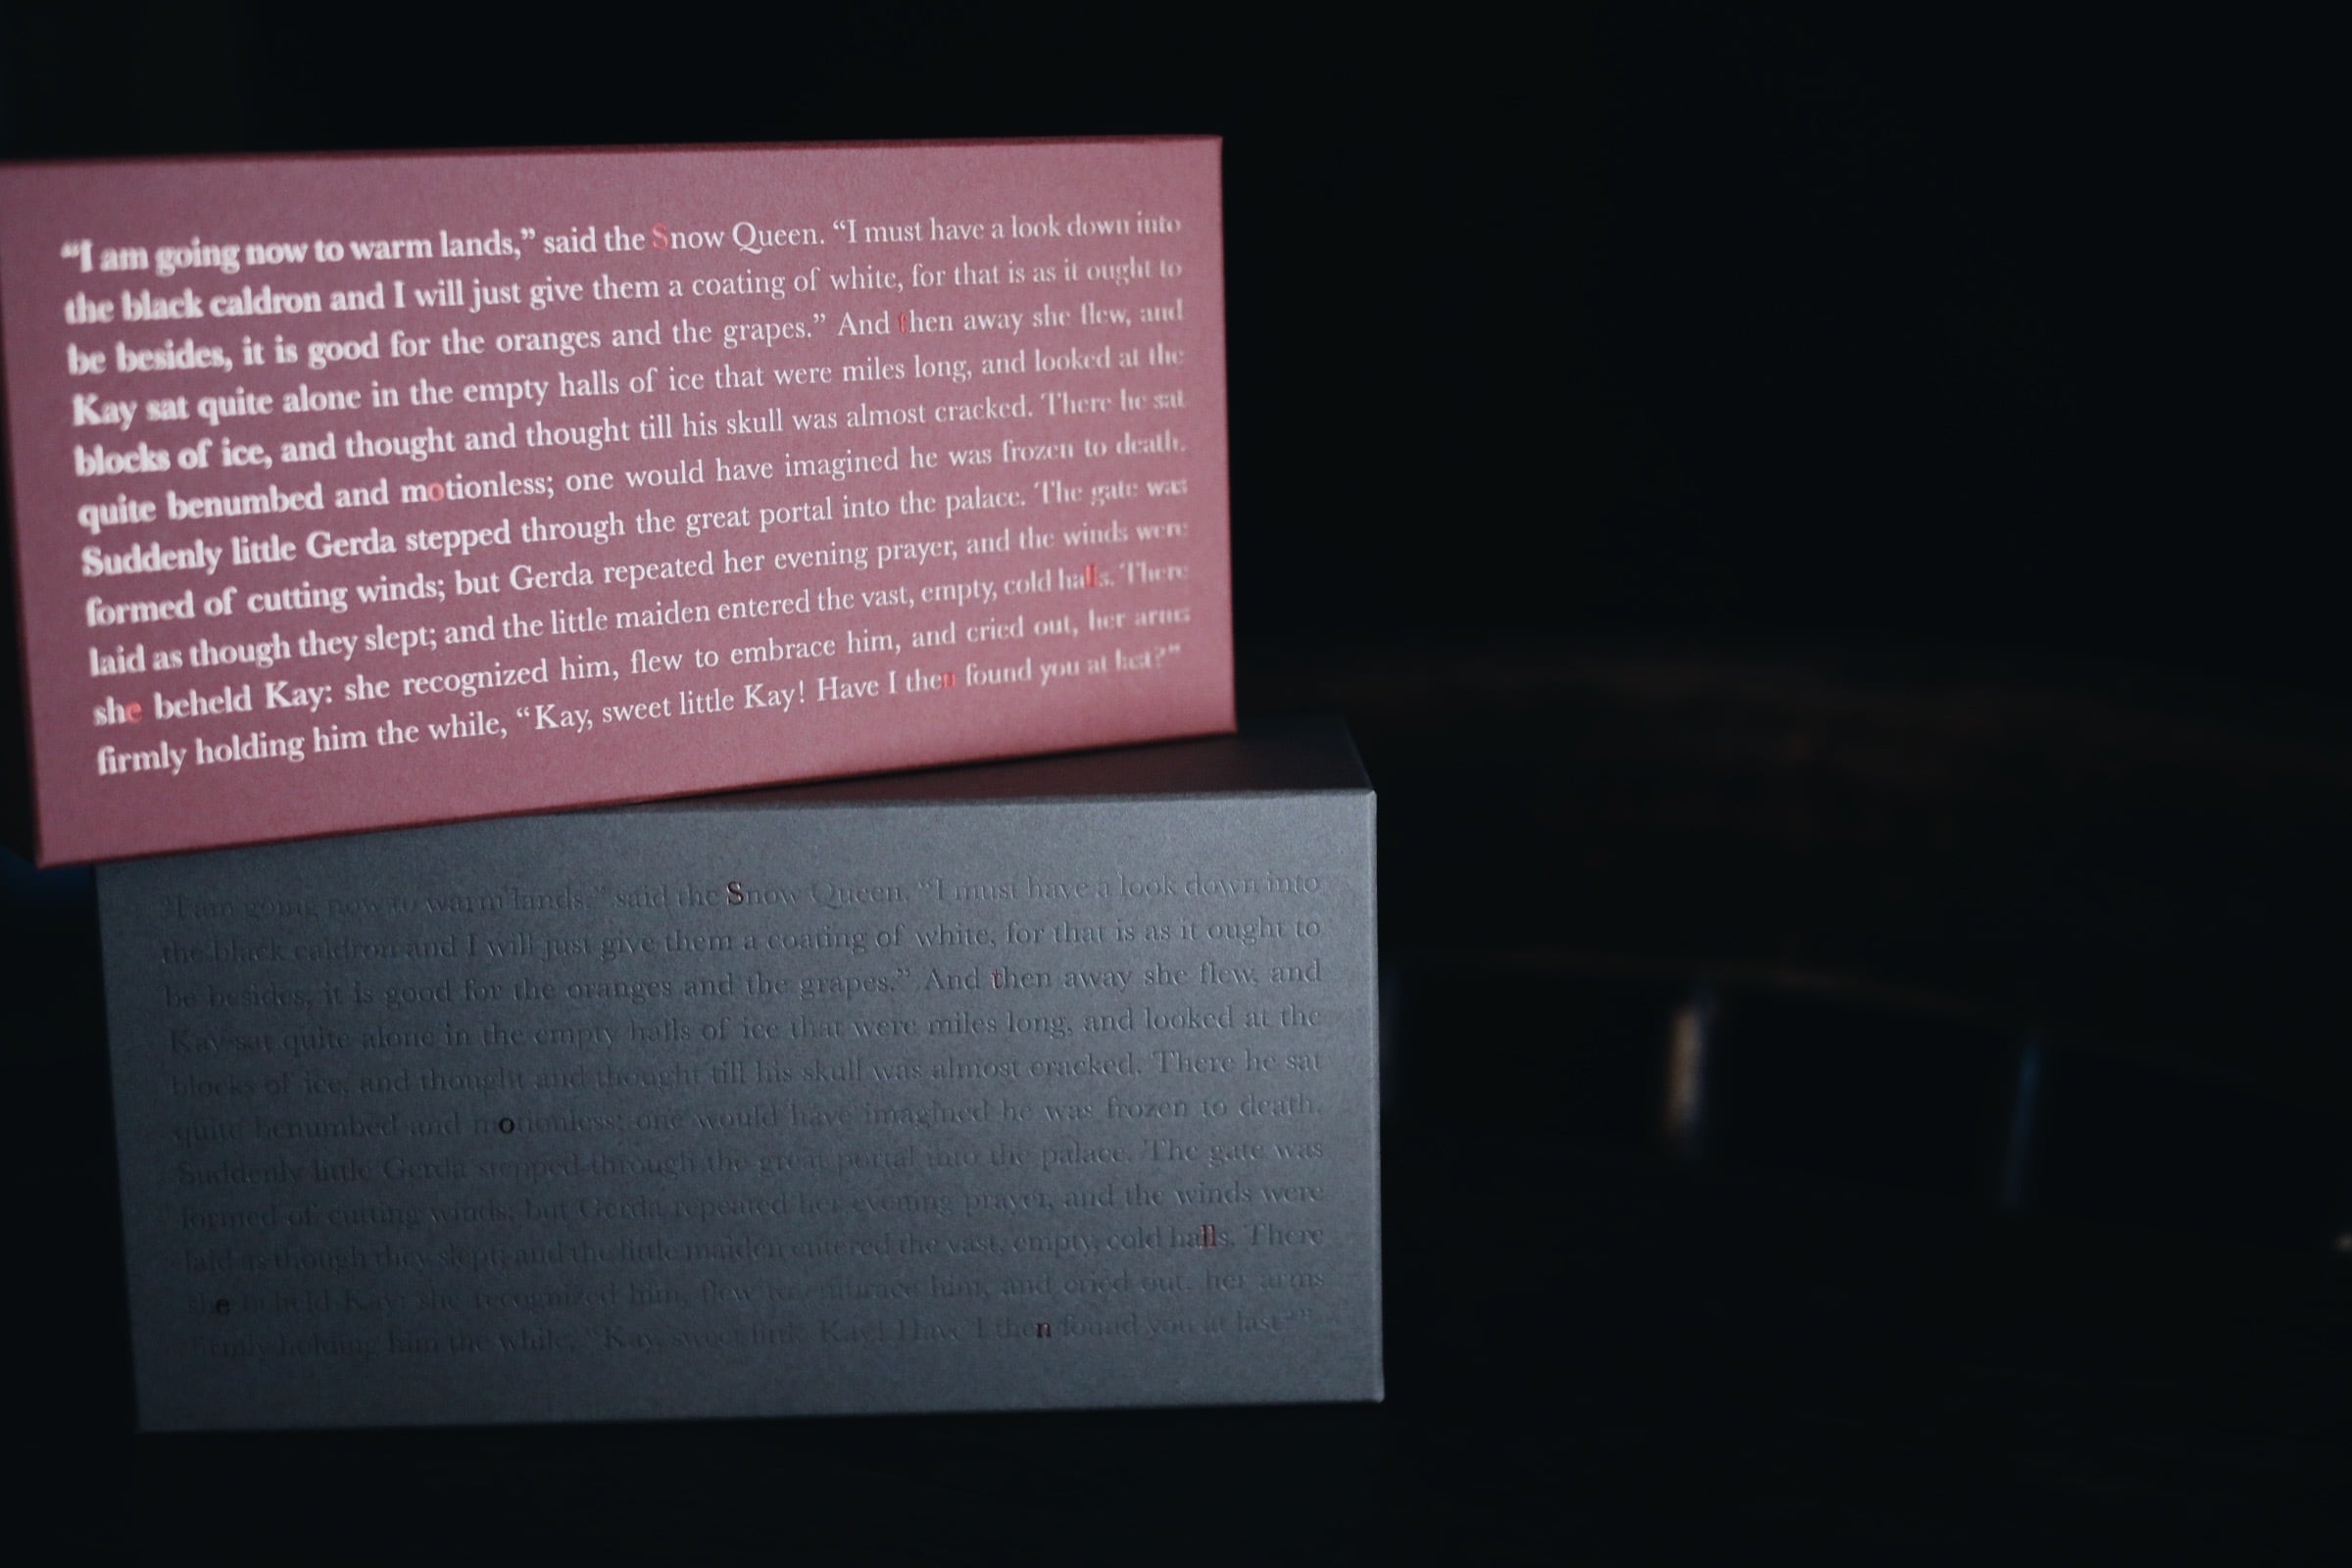 “I am going now to warm lands,” said the Snow Queen. “I must have a look down into
the black caldron and I will just give them a coating of white, for that is as it ought to
be besides, it is good for the oranges and the grapes.” And then away she flew, and
Kay sat quite alone in the empty halls of ice that were miles long, and looked at the
blocks of ice, and thought and thought till his skull was almost cracked. There he sat
quite benumbed and motionless; one would have imagined he was frozen to death.
Suddenly little Gerda stepped through the great portal into the palace. The gate was
formed of cutting winds; but Gerda repeated her evening prayer, and the winds were
laid as though they slept; and the little maiden entered the vast, empty, cold halls. There
she beheld Kay: she recognized him, flew to embrace him, and cried out, her arms
firmly holding him the while, “Kay, sweet little Kay! Have I then found you at last?”
“I am going now to warm lands,” said the Snow Queen. “I must have a look down into
the black caldron and I will just give them a coating of white, for that is as it ought to
be besides, it is good for the oranges and the grapes.” And then away she flew, and
Kay sat quite alone in the empty halls of ice that were miles long, and looked at the
blocks of ice, and thought and thought till his skull was almost cracked. There he sat
quite benumbed and motionless; one would have imagined he was frozen to death.
Suddenly little Gerda stepped through the great portal into the palace. The gate was
formed of cutting winds; but Gerda repeated her evening prayer, and the winds were
laid as though they slept; and the little maiden entered the vast, empty, cold halls. There
she beheld Kay: she recognized him, flew to embrace him, and cried out, her arms
firmly holding him the while, “Kay, sweet little Kay! Have I then found you at last?”